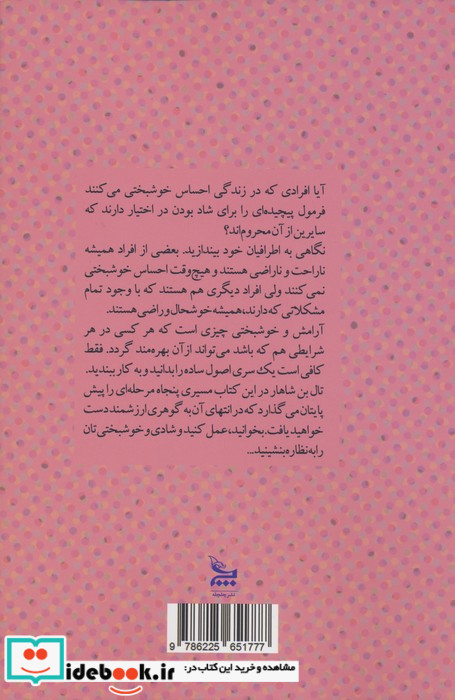 آیا افرادی که در زندگی احساس خوشبختی می‌کنند
فرمول پیچیده‌ای را برای شاد بودن در اختیار دارند که
سایرین از آن محروم‌اند؟
نگاهی به اطرافیان خود بیندازید. بعضی از افراد همیشه
ناراحت و ناراضی هستند و هیچ‌وقت احساس خوشبختی
نمی‌کنند ولی افراد دیگری هم هستند که با وجود تمام
مشکلاتی که دارند، همیشه خوشحال و راضی هستند.
آرامش و خوشبختی چیزی است که هر کسی در هر
شرایطی هم که باشد می‌تواند از آن بهره‌مند گردد. فقط
کافی است یک سری اصول ساده را بدانید و به کار ببندید.
تال بن شاهار در این کتاب مسیری پنجاه مرحله‌ای را پیش
پایتان می‌گذارد که در انتهای آن به گوهری ارزشمند دست
خواهید یافت. بخوانید، عمل کنید و شادی و خوشبختی تان
را به نظاره بنشینید...
9 786225 651777
مشاهده و خرید این کتاب در:
idebook.ir